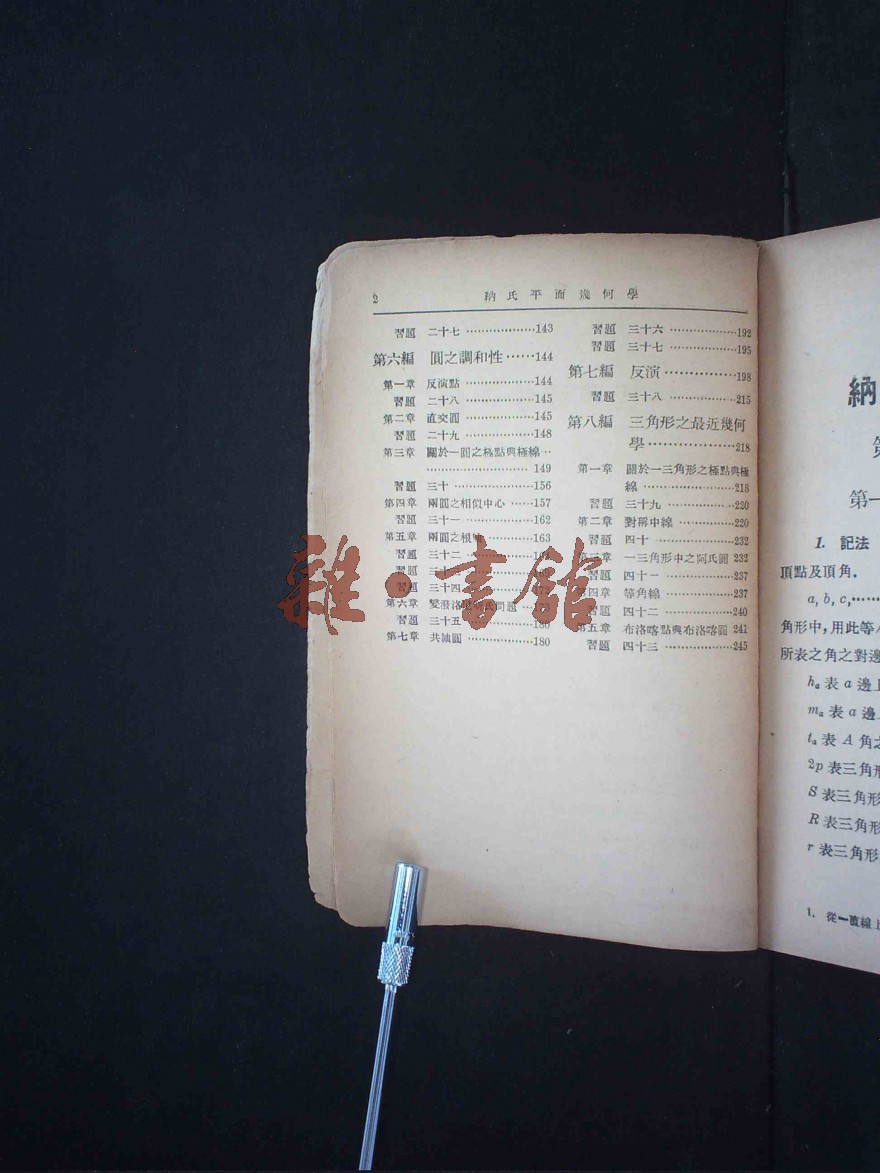 2
納氏平面幾何學
習題 二十七 ………………143
第六編 圓之調和性……144
第一章 反演點………………144
習題 二十八………………145
第二章 直交圓………………145
習題 二十九………………148
第三章 關於一圓之極點與極線…
………………………149
習題 三十………………156
第四章 兩圓之相似中心……157
習題 三十一………………162
第五章 兩圓之根軸………163
習題 三十二
習題
習題 三十四
第六章 問題
習題 三十五………………180
第七章 共軸圓………………180
習題 三十六………………192
習題 三十七………………195
第七編 反演………………198
習題 三十八………………215
第八編 三角形之最近幾何
學………………218
第一章 關於一三角形之極點與極
線………………218
習題 三十九………………220
第二章 對稱中線……………220
習題 四十………………232
第三章 一三角形中之阿氏圓 232
習題 四十一………………237
第四章 等角線………………237
習題 四十二………………240
第五章 布洛喀點與布洛喀圓 241
習題 四十三………………245
雜·書館
納
第一
1. 記法
頂點及頂角.
a, b, c,……
角形中,用此等
所表之角之對邊
hₐ 表 a 邊上
mₐ 表 a 邊上
tₐ 表 A 角之
2p 表三角形
S 表三角形
R 表三角形
r 表三角形
1. 從一直線上